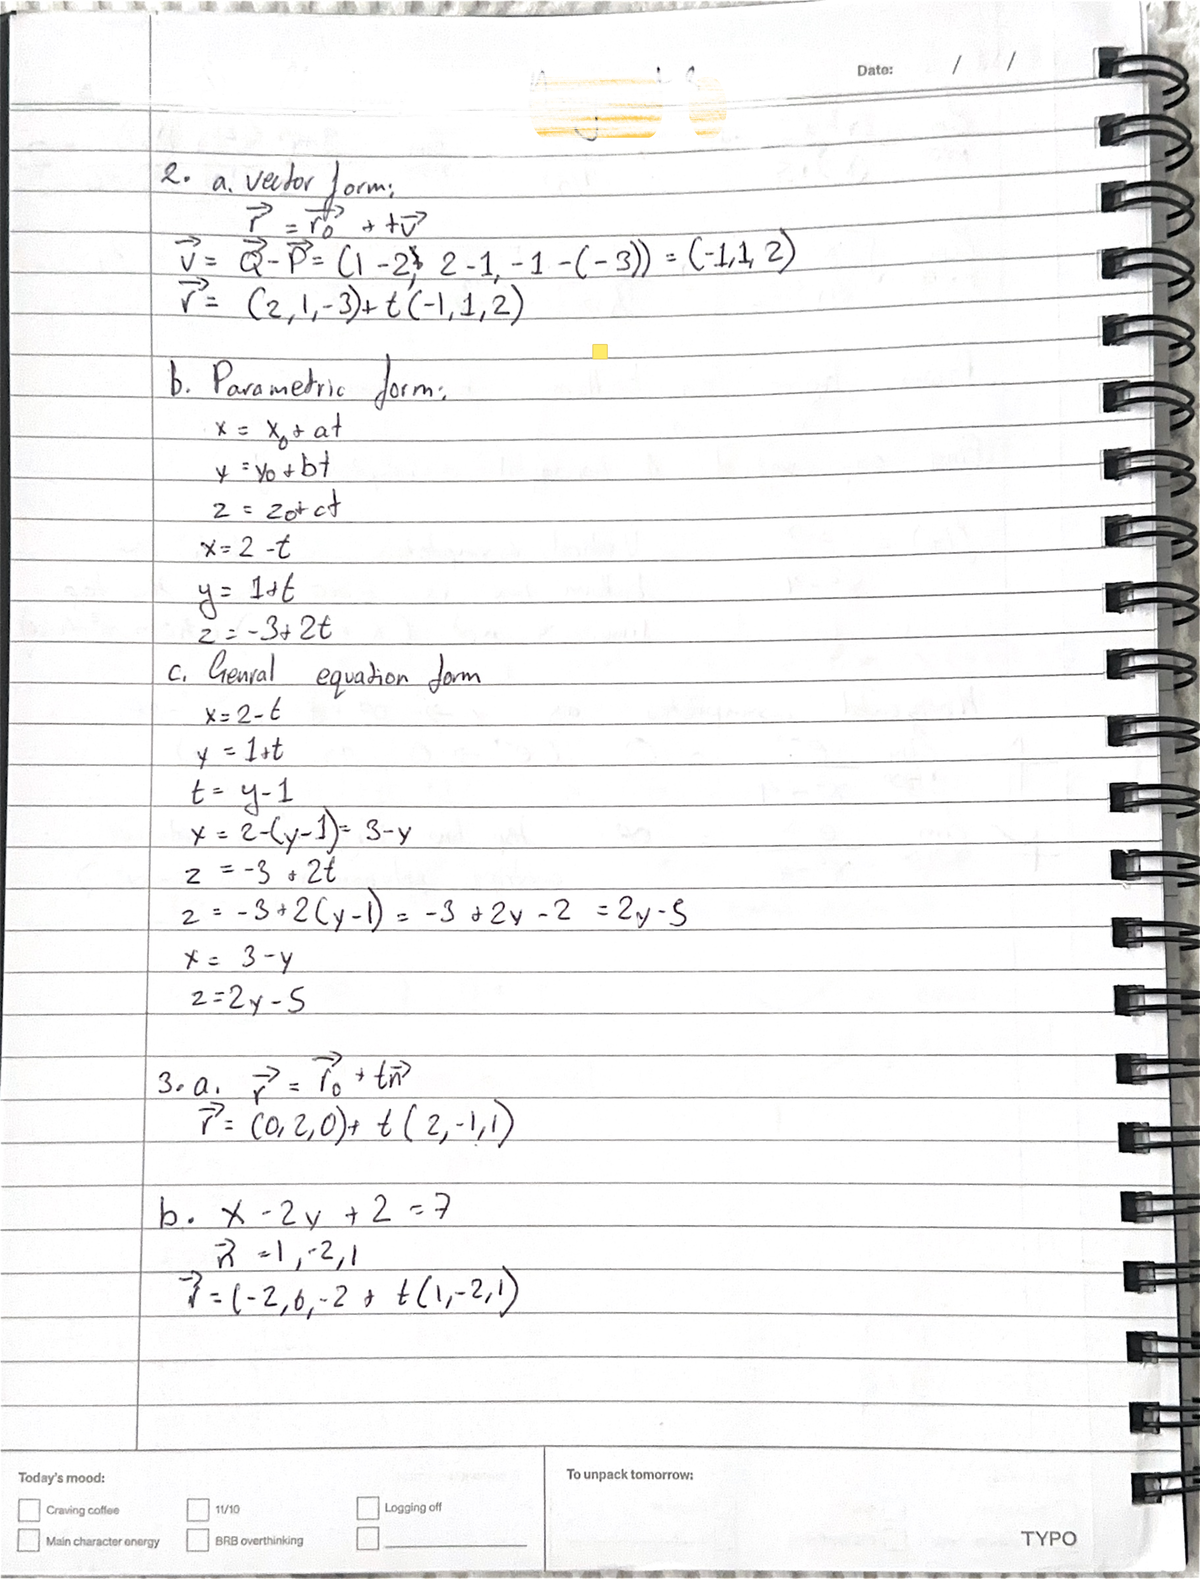 Date: / /
2. a. vector form:
r⃗ = r₀⃗ + tv⃗
v⃗ = Q⃗ - P⃗ = (1 - 2, 2 - 1, -1 - (-3)) = (-1, 1, 2)
r⃗ = (2, 1, -3) + t(-1, 1, 2)
b. Parametric form:
x = x₀ + at
y = y₀ + bt
z = z₀ + ct
x = 2 - t
y = 1 + t
z = -3 + 2t
c. Genral equation form
x = 2 - t
y = 1 + t
t = y - 1
x = 2 - (y - 1) = 3 - y
z = -3 + 2t
z = -3 + 2(y - 1) = -3 + 2y - 2 = 2y - 5
x = 3 - y
z = 2y - 5
3. a. r⃗ = r₀⃗ + tn⃗
r⃗ = (0, 2, 0) + t(2, -1, 1)
b. x - 2y + z = 7
n⃗ = 1, -2, 1
r⃗ = (-2, 6, -2 + t(1, -2, 1)
Today's mood:
Craving coffee
11/10
Logging off
Main character energy
BRB overthinking
To unpack tomorrow:
TYPO